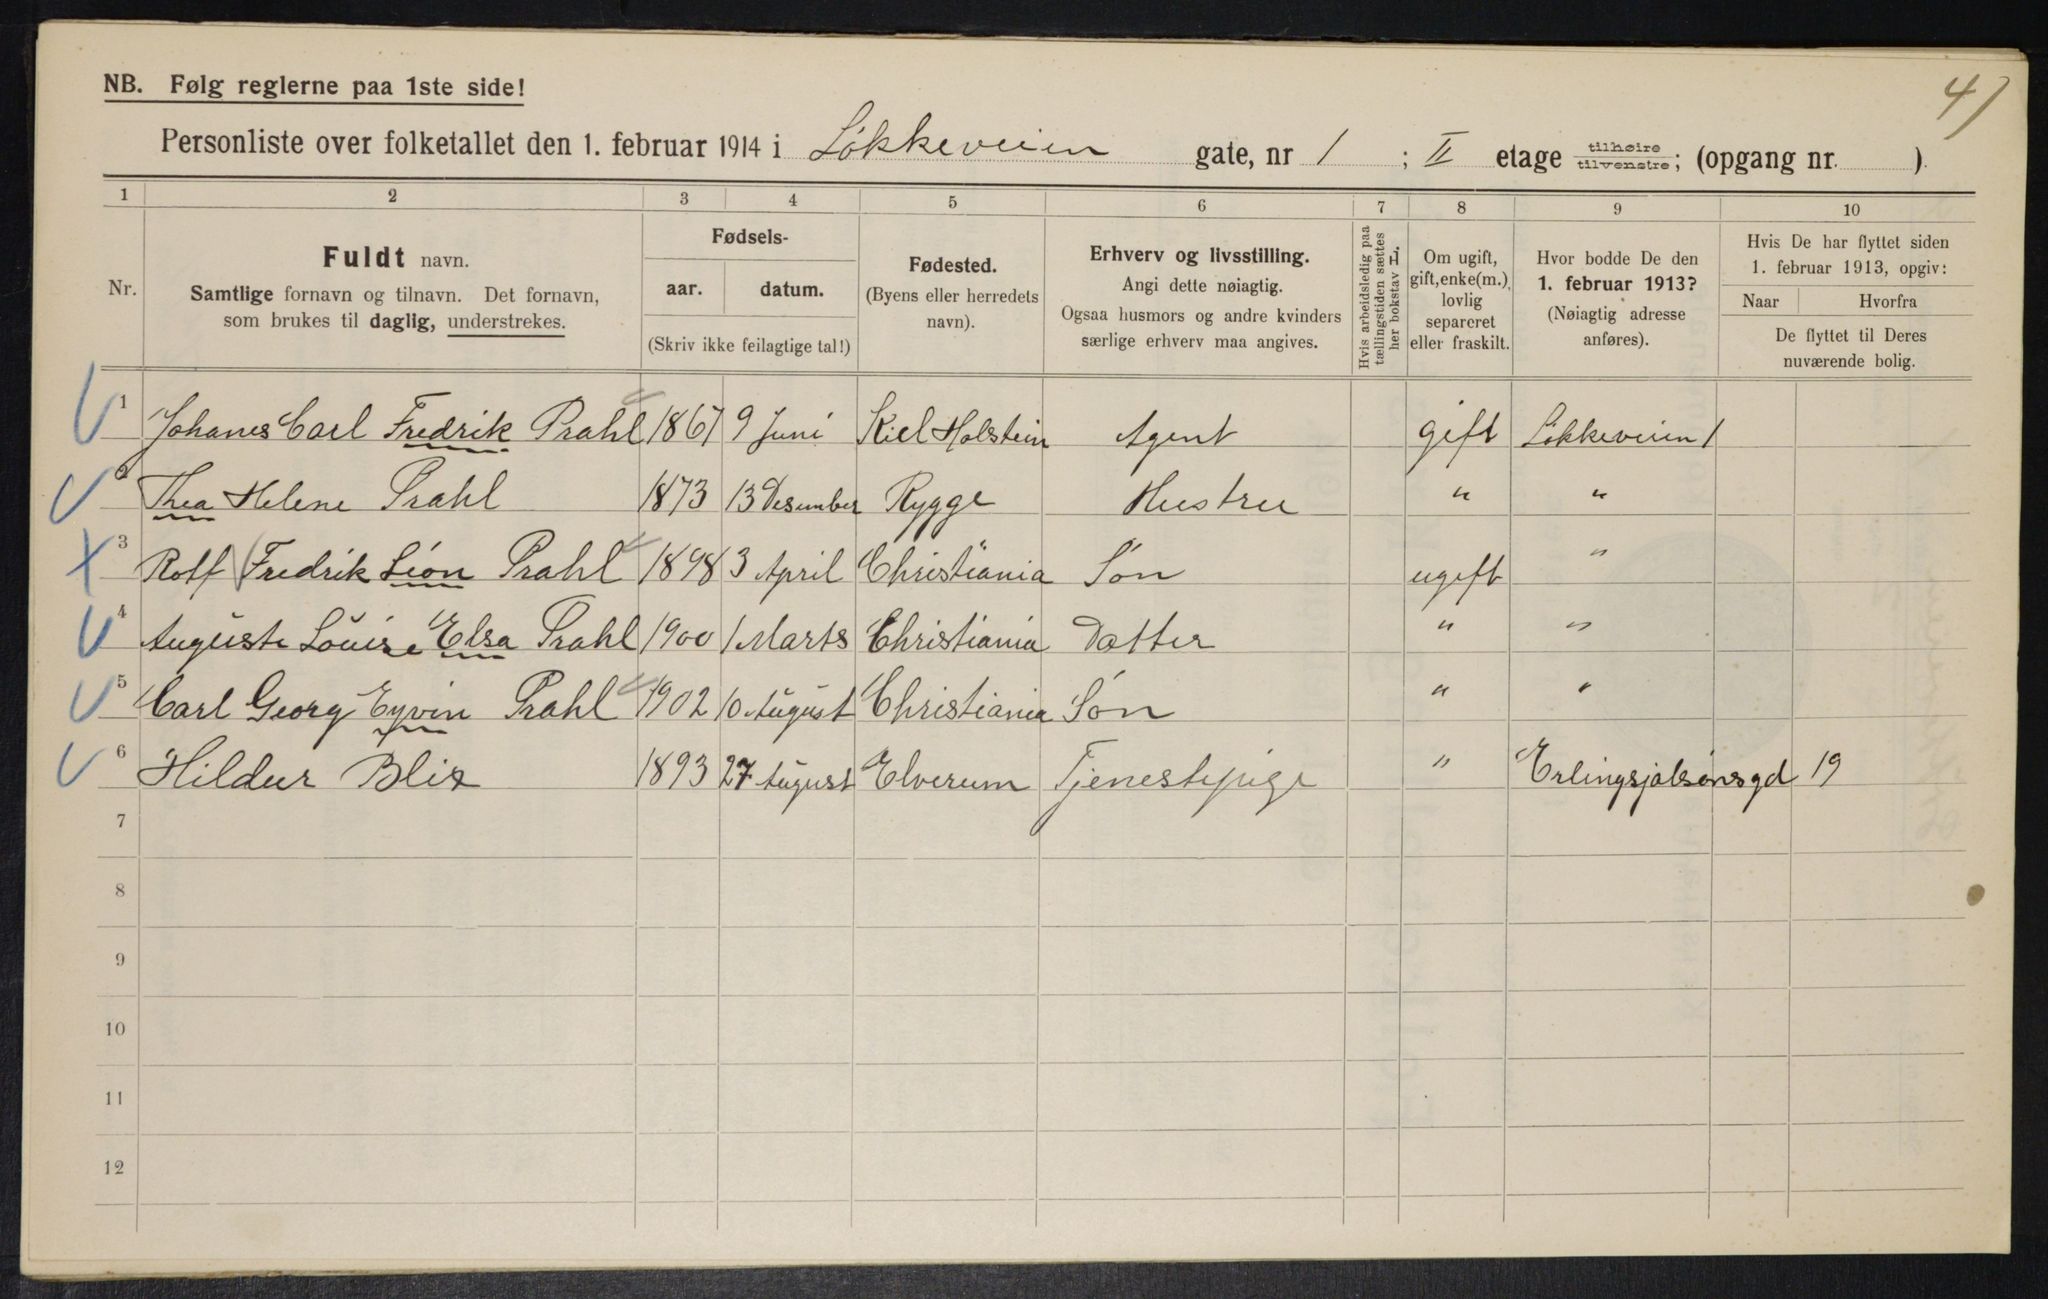 NB. Følg reglerne paa 1ste side!
41
Personliste over folketallet den 1. februar 1914 i Løkkeveien gate, nr 1 ; II etage tilhøire tilvenstre; (opgang nr. ).
1 2 3 4 5 6 7 8 9 10
Nr.
Fuldt navn.
Samtlige fornavn og tilnavn. Det fornavn,
som brukes til daglig, understrekes.
Fødsels-
aar. datum.
(Skriv ikke feilagtige tal!)
Fødested.
(Byens eller herredets
navn).
Erhverv og livsstilling.
Angi dette nøiagtig.
Ogsaa husmors og andre kvinders
særlige erhverv maa angives.
Hvis arbeidsledig paa
tællingstiden sættes
her bokstav L.
Om ugift,
gift, enke(m.),
lovlig
separeret
eller fraskilt.
Hvor bodde De den
1. februar 1913?
(Nøiagtig adresse
anføres).
Hvis De har flyttet siden
1. februar 1913, opgiv:
Naar Hvorfra
De flyttet til Deres
nuværende bolig.
1 Johanes Carl Fredrik Prahl 1867 9 Juni Kiel Holstein Agent gift Løkkeveien 1
2 Thea Helene Prahl 1873 13 Desember Rygge Hustru " "
3 Rolf Fredrik Léon Prahl 1898 3 April Christiania Søn ugift "
4 Auguste Louise Elsa Prahl 1900 1 Marts Christiania Datter " "
5 Carl Georg Eyvin Prahl 1902 10 August Christiania Søn " "
6 Hildur Blix 1893 27 August Elverum Tjenestepige " Erlingsjalsønsgd 19
7
8
9
10
11
12